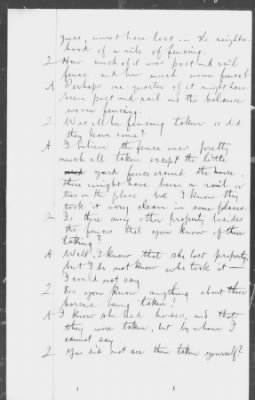 guess, must have lost in the neighbor-
hood of a mile of fencing.
Q How much of it was post and rail
fence and how much worm fence?
A Perhaps one quarter of it might have
been post and rail and the balance
worm fencing.
Q Was all her fencing taken or did
they leave some?
A I believe the fence was pretty
much all taken except the little
yard fences around the house.
There might have been a rail or
two on the place but I know they
took it very clean in some places.
Q Is there any other property besides
the fences that you know of their
taking?
A Well, I know that she lost property
but I do not know who took it—
I could not say.
Q Do you know anything about
horses being taken?
A I know she had horses, and that
they were taken, but by whom I
cannot say
Q You did not see them taken yourself?